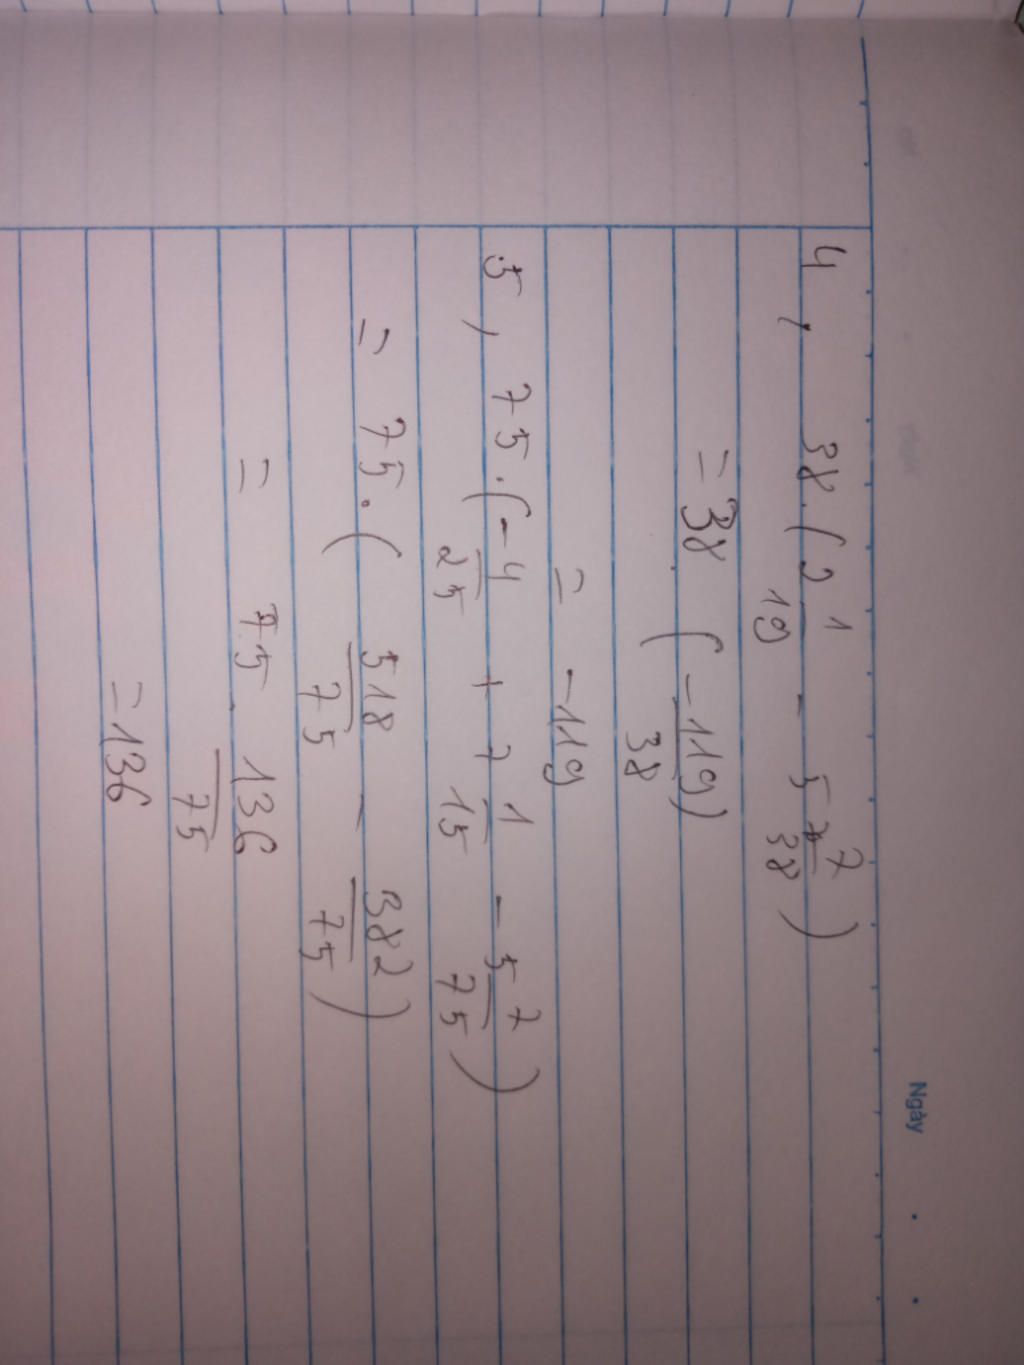 Ngày
4, 38.(2 1/19 - 5 7/38)
= 38 (-119/38)
= -119
5, 75.(-4/25 + 7 1/15 - 5 7/75)
= 75.(518/75 - 382/75)
= 75.136/75
= 136